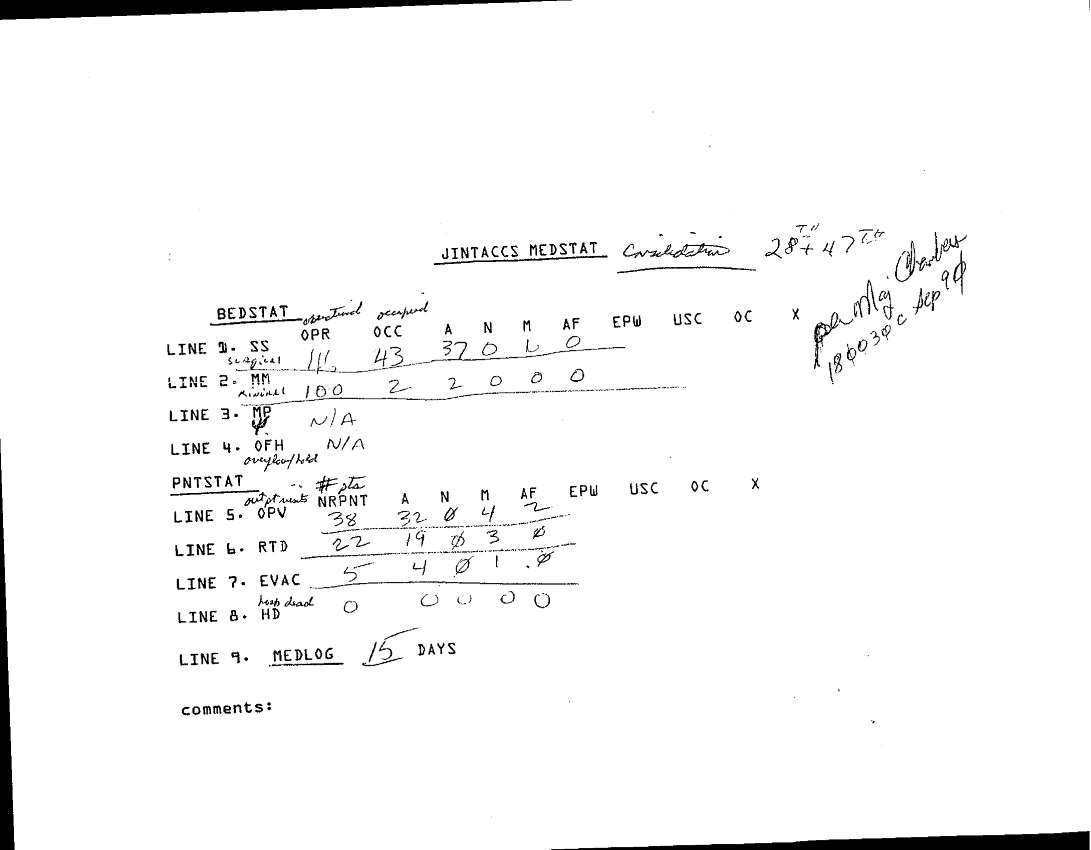 JINTACCS MEDSTAT Consolidation 28TH + 47TH
per Maj Chambers
180030C Sep 90
BEDSTAT operational occupied
OPR OCC A N M AF EPW USC OC X
LINE 1. SS 43 37 0 6 0
surgical
LINE 2. MM 100 2 2 0 0 0
minimal
LINE 3. MP N/A
LINE 4. OFH N/A
overflow/hold
PNTSTAT # pts
outpt visits NRPNT A N M AF EPW USC OC X
LINE 5. OPV 38 32 Ø 4 2
LINE 6. RTD 22 19 Ø 3 Ø
LINE 7. EVAC 5 4 Ø 1 Ø
hosp dead
LINE 8. HD 0 0 0 0 0
LINE 9. MEDLOG 15 DAYS
comments: